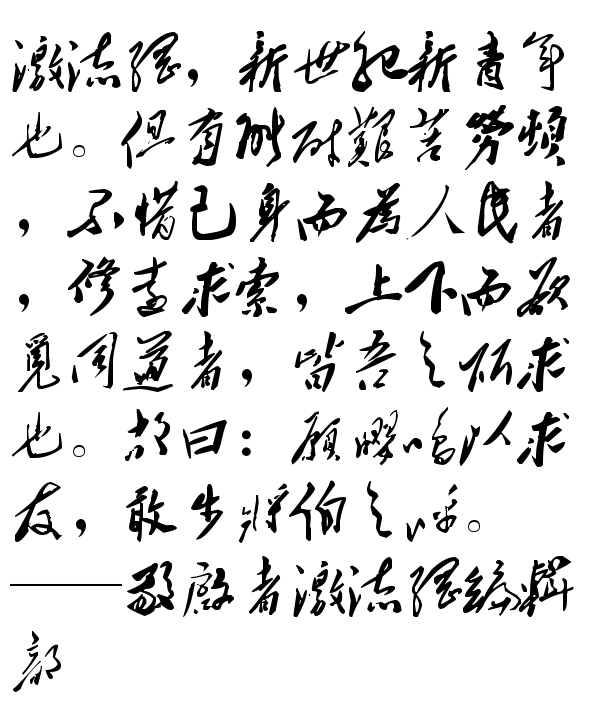 激流網，新世紀新青年
也。但有能耐艱苦勞頓
，不惜己身而為人民者
，修遠求索，上下而欲
覓同道者，皆吾之所求
也。故曰：願嚶鳴以求
友，敢步將伯之呼。
——敬啟者激流網編輯
部